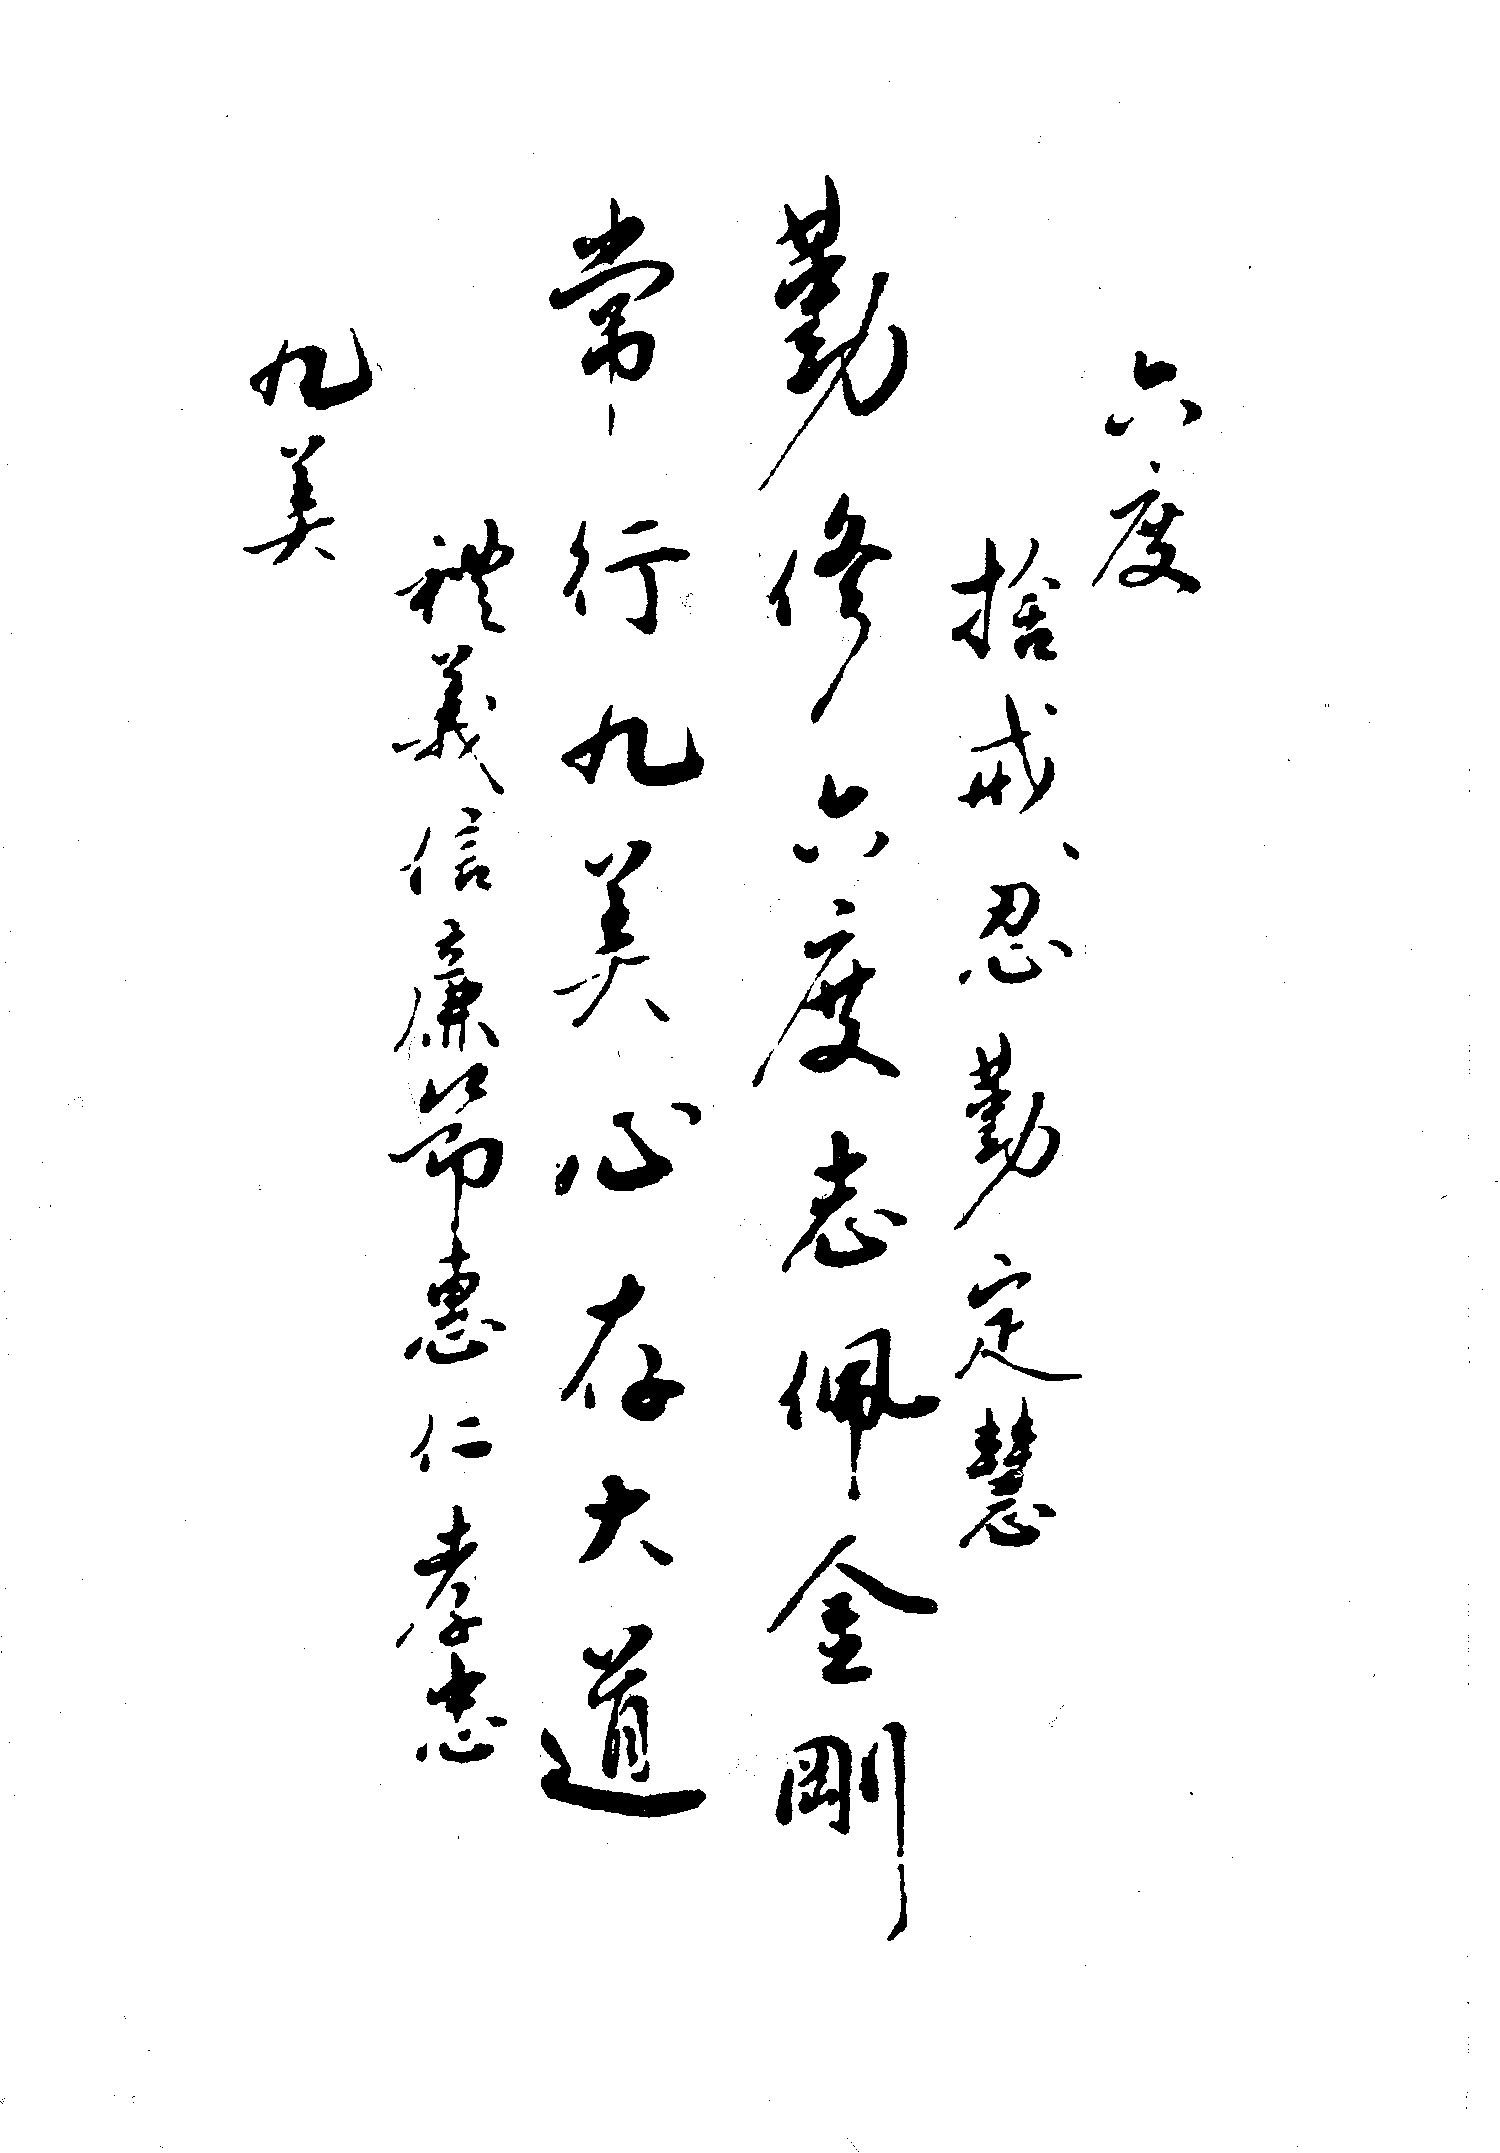 六度
捨戒忍勤定慧
勤修六度志佩金剛
常行九美心存大道
禮義信廉節惠仁孝忠
九美